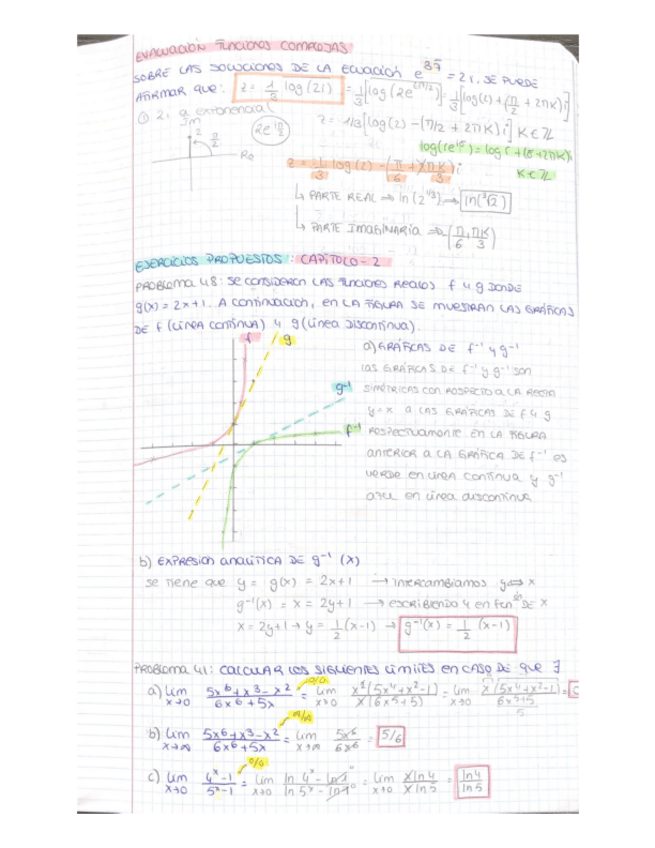 EVALUACIÓN FUNCIONES COMPLEJAS
SOBRE LAS SOLUCIONES DE LA ECUACIÓN e^3z̄ = 2i, SE PUEDE
AFIRMAR QUE: z = 1/3 log(2i) = 1/3 [log(2e^(π/2)i)] = 1/3 [log(2) + (π/2 + 2πK)i]
① 2i a exponencial
z = 1/3 [log(2) - (π/2 + 2πK)i] K ∈ Z
Im
2
π/2
Re
2e^iπ/2
log(re^iθ) = log r + (θ+2πK)i
K ∈ Z
z = 1/3 log(2) - (π/6 + 2πK/3)i
↳ PARTE REAL ⇒ ln(2^1/3) → ln(∛2)
↳ PARTE IMAGINARIA ⇒ -(π/6, πK/3)
EJERCICIOS PROPUESTOS: CAPÍTULO-2
PROBLEMA 48: SE CONSIDERAN LAS FUNCIONES REALES f y g DONDE
g(x) = 2x+1. A CONTINUACIÓN, EN LA FIGURA SE MUESTRAN LAS GRÁFICAS
DE f (LÍNEA CONTINUA) y g (LÍNEA DISCONTINUA).
f
g
g⁻¹
f⁻¹
a) GRÁFICAS DE f⁻¹ y g⁻¹
LAS GRÁFICAS DE f⁻¹ y g⁻¹ son
SIMÉTRICAS CON RESPECTO A LA RECTA
y=x a LAS GRÁFICAS DE f y g
RESPECTIVAMENTE EN LA FIGURA
ANTERIOR A LA GRÁFICA DE f⁻¹ es
VERDE EN LÍNEA CONTINUA y g⁻¹
AZUL EN LÍNEA DISCONTINUA
b) EXPRESIÓN ANALÍTICA DE g⁻¹(x)
se TIENE QUE y = g(x) = 2x+1 → INTERCAMBIAMOS y ↔ x
g⁻¹(x) = x = 2y+1 → ESCRIBIENDO y en función DE x
x = 2y+1 → y = 1/2 (x-1) → g⁻¹(x) = 1/2 (x-1)
PROBLEMA 41: CALCULAR LOS SIGUIENTES LÍMITES EN CASO DE QUE ∃
a) lim x→0 (5x⁶+x³-x²)/(6x⁶+5x) = 0/0 = lim x→0 x²(5x⁴+x²-1)/x(6x⁵+5) = lim x→0 x(5x⁴+x²-1)/(6x⁵+5) = 0
5
b) lim x→∞ (5x⁶+x³-x²)/(6x⁶+5x) = ∞/∞ = lim x→∞ 5x⁶/6x⁶ = 5/6
c) lim x→0 (4ˣ-1)/(5ˣ-1) = 0/0 = lim x→0 (ln 4ˣ - ln 1)/(ln 5ˣ - ln 1) = lim x→0 (x ln 4)/(x ln 5) = ln 4/ln 5